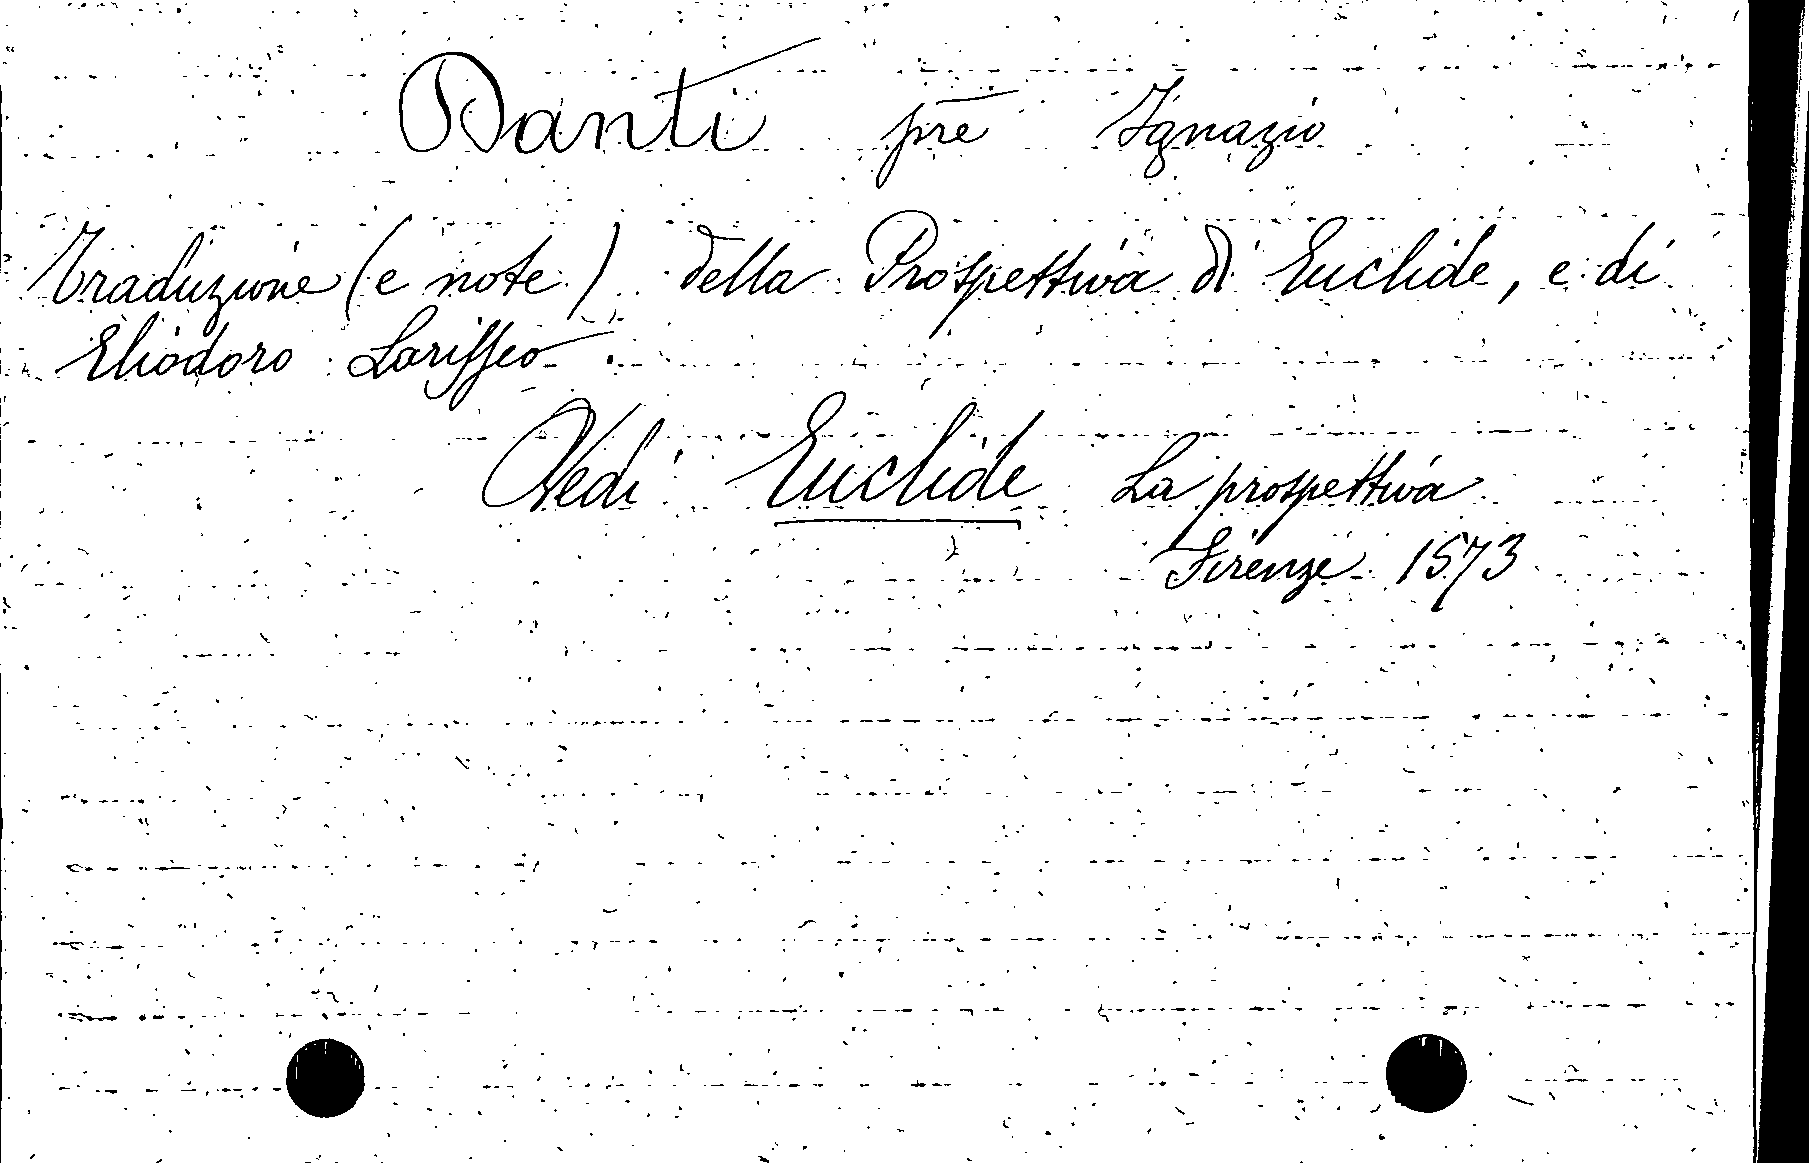 Danti pre Ignazio
Traduzione (e note) della Prospettiva di Euclide, e di
Eliodoro Larisseo.
Vedi Euclide La prospettiva
Firenze 1573